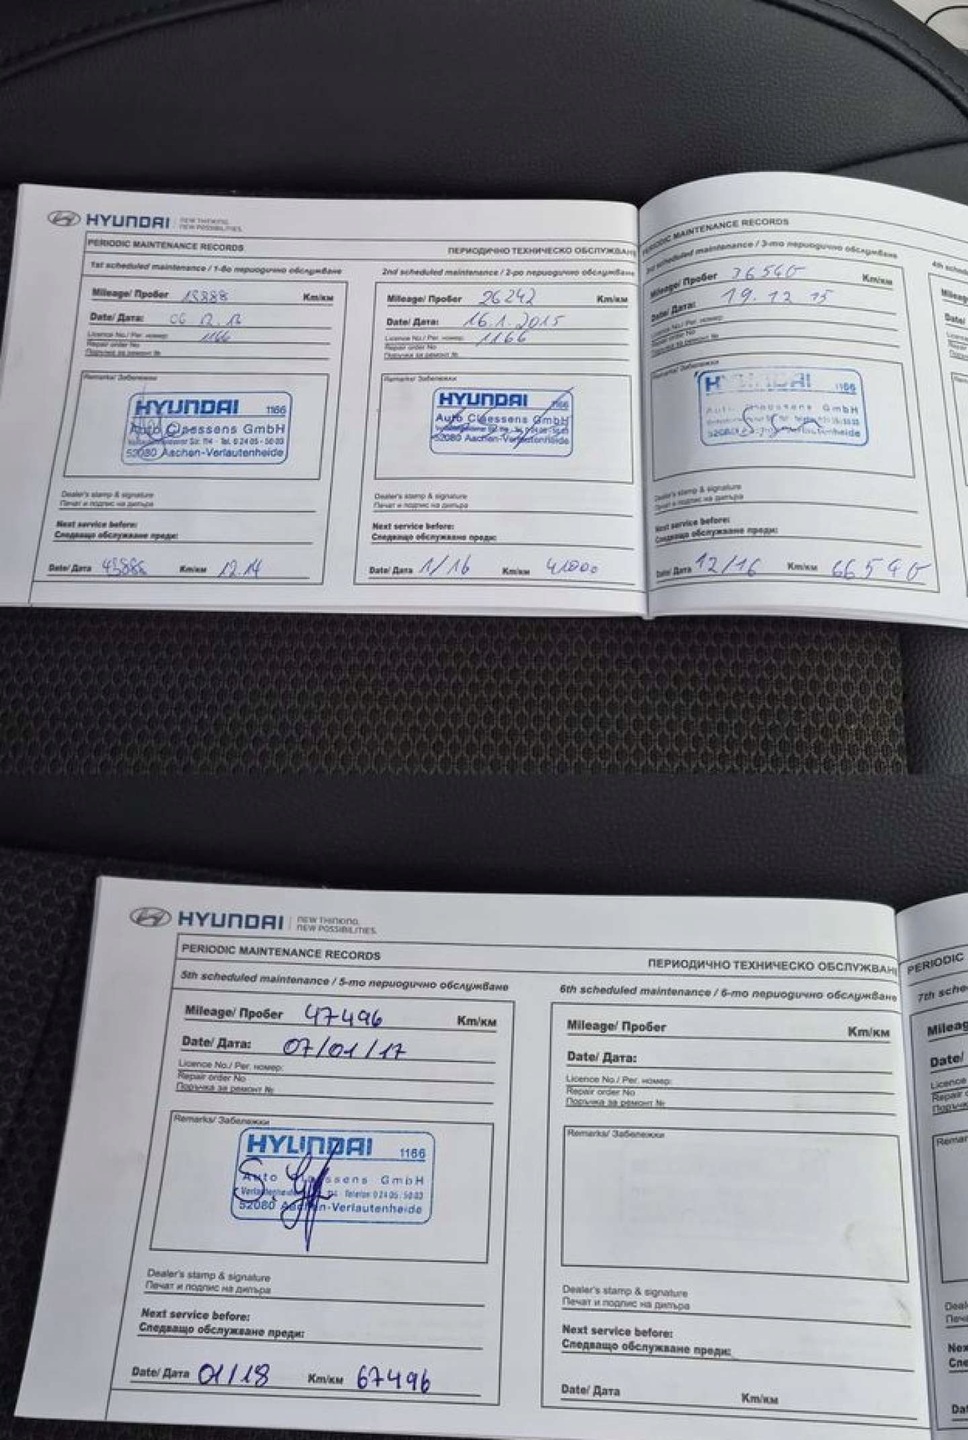 HYUNDAI NEW THINKING. NEW POSSIBILITIES.
PERIODIC MAINTENANCE RECORDS
ПЕРИОДИЧНО ТЕХНИЧЕСКО ОБСЛУЖВАН
1st scheduled maintenance / 1-во периодично обслужване
Mileage/ Пробег Km/км
Date/ Дата:
Licence No./ Рег. номер: 1166
Repair order No
Поръчка за ремонт №
Remarks/ Забележки
HYUNDAI 1166
Auto Claessens GmbH
Str. 114 - Tel. 0 24 05 - 50 03
52080 Aachen-Verlautenheide
Dealer's stamp & signature
Печат и подпис на дилъра
Next service before:
Следващо обслужване преди:
Date/ Дата Km/км 12.14
2nd scheduled maintenance / 2-ро периодично обслужване
Mileage/ Пробег 26242 Km/км
Date/ Дата: 16.1.2015
Licence No./ Рег. номер: 1166
Repair order No
Поръчка за ремонт №
Remarks/ Забележки
HYUNDAI 1166
Auto Claessens GmbH
52080 Aachen-Verlautenheide
Dealer's stamp & signature
Печат и подпис на дилъра
Next service before:
Следващо обслужване преди:
Date/ Дата 1/16 Km/км 41000
PERIODIC MAINTENANCE RECORDS
3rd scheduled maintenance / 3-то периодично обслужване
Mileage/ Пробег 36540 Km/км
Date/ Дата: 19.12.15
Remarks/ Забележки
HYUNDAI 1166
Auto Claessens GmbH
52080 Aachen-Verlautenheide
Dealer's stamp & signature
Печат и подпис на дилъра
Next service before:
Следващо обслужване преди:
Date/ Дата 12/16 Km/км 66540
4th
HYUNDAI NEW THINKING. NEW POSSIBILITIES.
PERIODIC MAINTENANCE RECORDS
ПЕРИОДИЧНО ТЕХНИЧЕСКО ОБСЛУЖВАН
5th scheduled maintenance / 5-то периодично обслужване
Mileage/ Пробег 47496 Km/км
Date/ Дата: 07/01/17
Licence No./ Рег. номер:
Repair order No
Поръчка за ремонт №
Remarks/ Забележки
HYUNDAI 1166
Auto Claessens GmbH
Telefon 0 24 05 / 50 03
52080 Aachen-Verlautenheide
Dealer's stamp & signature
Печат и подпис на дилъра
Next service before:
Следващо обслужване преди:
Date/ Дата 01/18 Km/км 67496
6th scheduled maintenance / 6-то периодично обслужване
Mileage/ Пробег Km/км
Date/ Дата:
Licence No./ Рег. номер:
Repair order No
Поръчка за ремонт №
Remarks/ Забележки
Dealer's stamp & signature
Печат и подпис на дилъра
Next service before:
Следващо обслужване преди:
Date/ Дата Km/км
PERIODIC
7th sche
Mileag
Date/
Licence
Repair